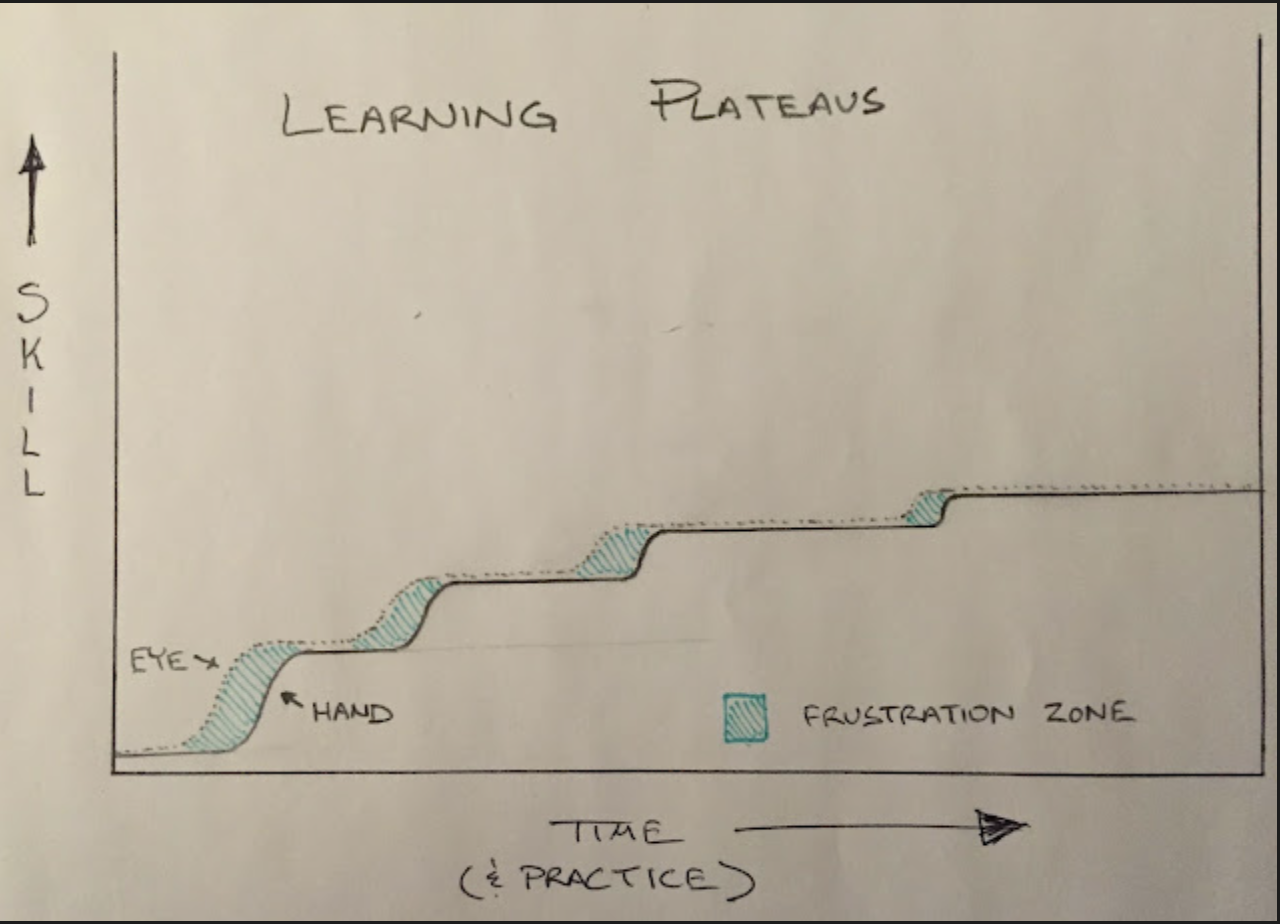 LEARNING PLATEAUS
SKILL
EYE
HAND
FRUSTRATION ZONE
TIME
(& PRACTICE)